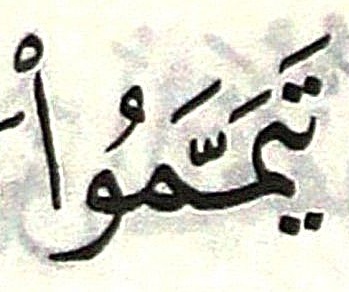 تَيَمَّمُواْ